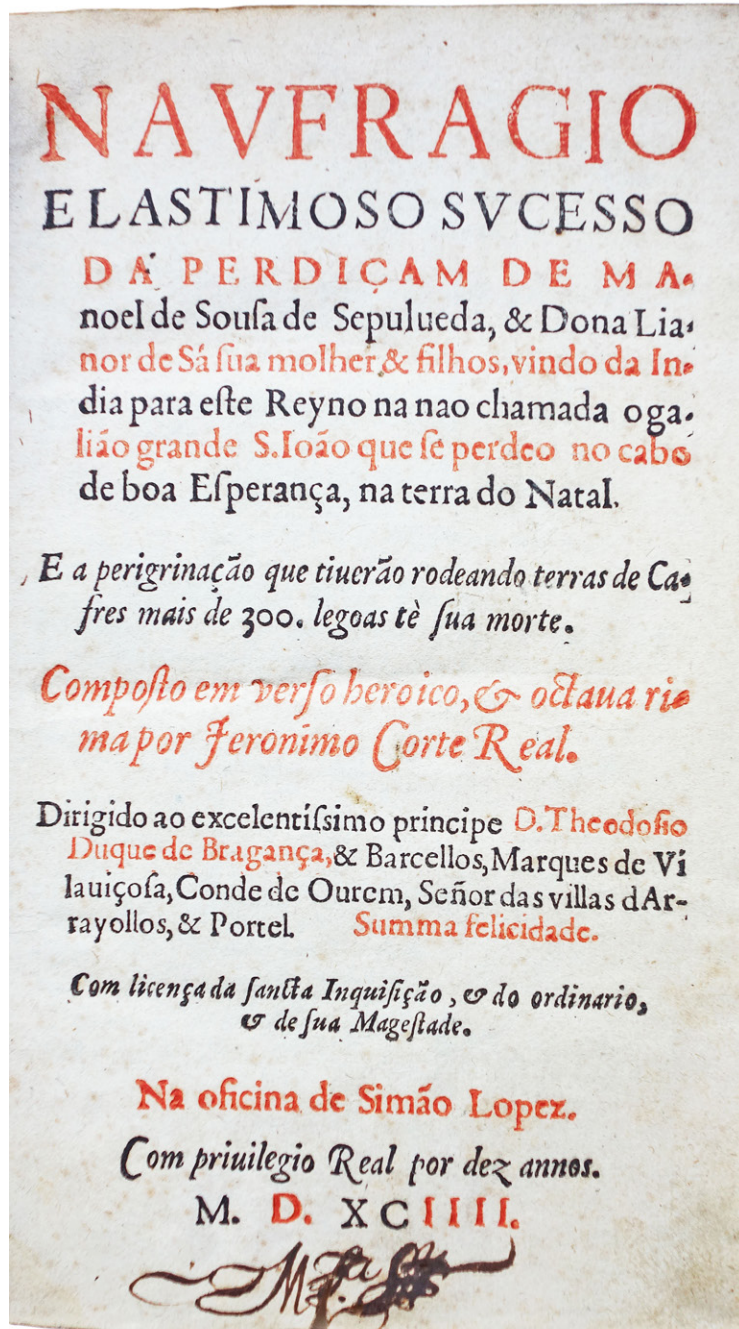 NAVFRAGIO
E LASTIMOSO SVCESSO
DA PERDIÇAM DE MA-
noel de Souſa de Sepulueda, & Dona Lia-
nor de Sá ſua molher, & filhos, vindo da In-
dia para eſte Reyno na nao chamada o ga-
lião grande S. Ioão que ſe perdeo no cabo
de boa Eſperança, na terra do Natal.
E a perigrinação que tiuerão rodeando terras de Ca-
fres mais de 300. legoas tè ſua morte.
Compoſto em verſo heroico, & octaua ri-
ma por Jeronimo Corte Real.
Dirigido ao excelentíſsimo principe D. Theodoſio
Duque de Bragança, & Barcellos, Marques de Vi
lauiçoſa, Conde de Ourem, Señor das villas dAr-
rayollos, & Portel. Summa felicidade.
Com licença da ſancta Inquiſição, & do ordinario,
& de ſua Mageſtade.
Na oficina de Simão Lopez.
Com priuilegio Real por dez annos.
M. D. XCIIII.